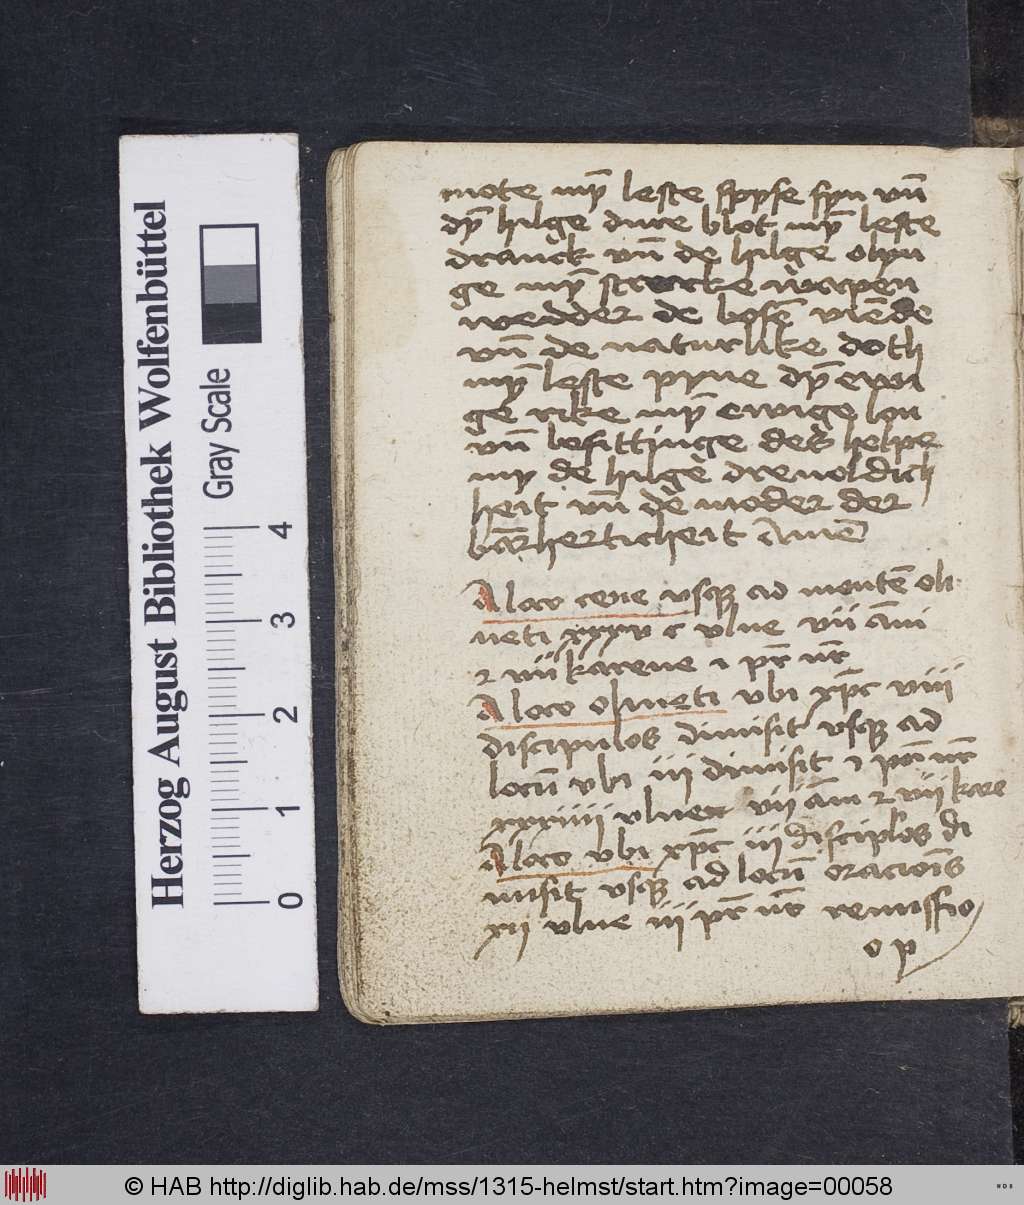 mote my̅ leste spyse syn vn̅
dy̅ hilge dure blot my̅ leste
dranck vn̅ de hilge olyn
ge my̅ starcke wapen
wedder de bose̅ vie̅de
vn̅ de naturlike doth
my̅ leste pyne dy̅ ewi
ge rike my̅ ewige lon
vn̅ besittinge des helpe
my de hilge dreuoldich
heit vn̅ de moder der
bar̅herticheit Ame̅
A loco cene vsq̨ ad monte̅ oli
neti xxxv c vlne vii a̅ni
et vii karene 1 pr̅ nr̅
A loco oliueti vbi xp̅c viii
discipulos dimisit vsq̨ ad
locu̅ vbi iii dimisit 1 pr̅ nr̅
xxxiiii vlnen vii a̅ni et vii kare
A loco vbi xp̅c iii disciplos di
misit vsq̨ ad locu̅ oracio̅is
xii vlne iij pr̅ nr̅ remissio
o p
Herzog August Bibliothek Wolfenbüttel
Gray Scale
0 1 2 3 4
© HAB http://diglib.hab.de/mss/1315-helmst/start.htm?image=00058